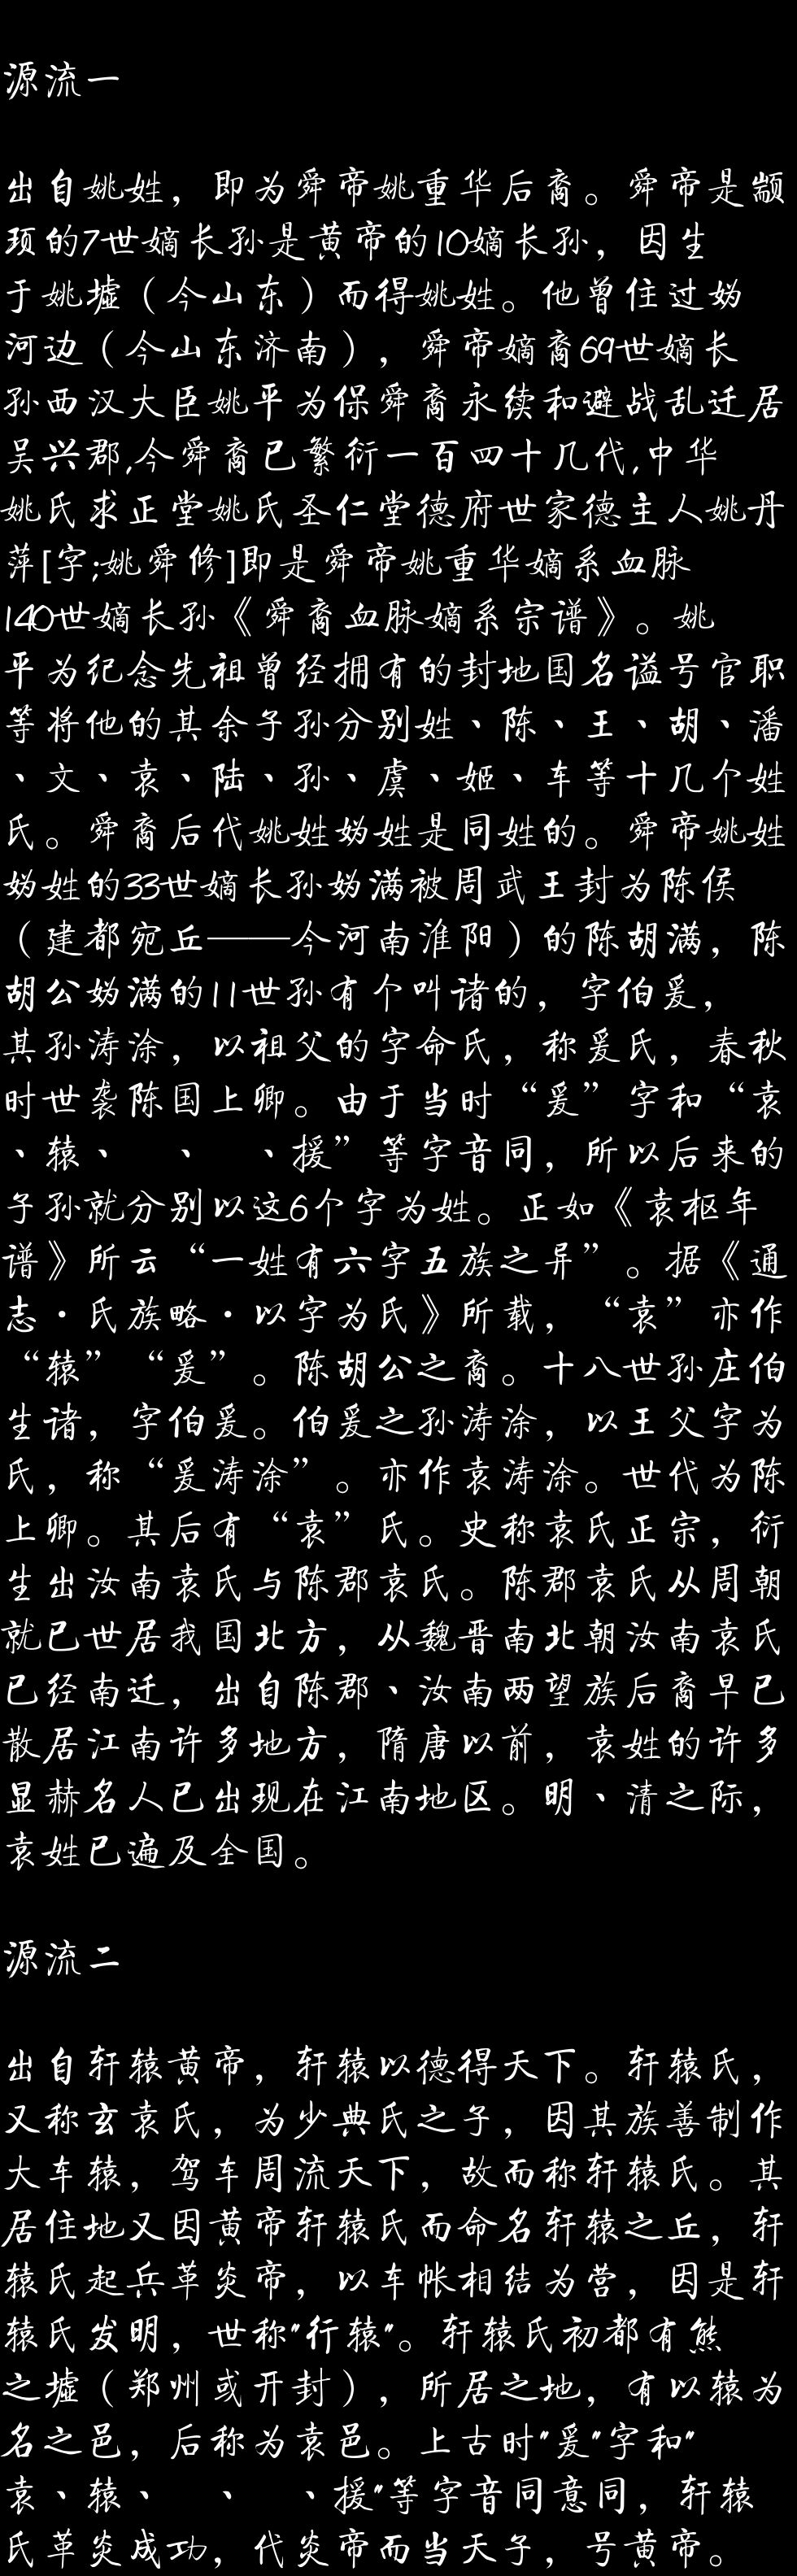 源流一
出自姚姓，即为舜帝姚重华后裔。舜帝是颛
顼的7世嫡长孙是黄帝的10嫡长孙，因生
于姚墟（今山东）而得姚姓。他曾住过妫
河边（今山东济南），舜帝嫡裔69世嫡长
孙西汉大臣姚平为保舜裔永续和避战乱迁居
吴兴郡,今舜裔已繁衍一百四十几代,中华
姚氏求正堂姚氏圣仁堂德府世家德主人姚丹
萍[字;姚舜修]即是舜帝姚重华嫡系血脉
140世嫡长孙《舜裔血脉嫡系宗谱》。姚
平为纪念先祖曾经拥有的封地国名谥号官职
等将他的其余子孙分别姓、陈、王、胡、潘
、文、袁、陆、孙、虞、姬、车等十几个姓
氏。舜裔后代姚姓妫姓是同姓的。舜帝姚姓
妫姓的33世嫡长孙妫满被周武王封为陈侯
（建都宛丘——今河南淮阳）的陈胡满，陈
胡公妫满的11世孙有个叫诸的，字伯爰，
其孙涛涂，以祖父的字命氏，称爰氏，春秋
时世袭陈国上卿。由于当时“爰”字和“袁
、辕、 、 、援”等字音同，所以后来的
子孙就分别以这6个字为姓。正如《袁枢年
谱》所云“一姓有六字五族之异”。据《通
志·氏族略·以字为氏》所载，“袁”亦作
“辕”“爰”。陈胡公之裔。十八世孙庄伯
生诸，字伯爰。伯爰之孙涛涂，以王父字为
氏，称“爰涛涂”。亦作袁涛涂。世代为陈
上卿。其后有“袁”氏。史称袁氏正宗，衍
生出汝南袁氏与陈郡袁氏。陈郡袁氏从周朝
就已世居我国北方，从魏晋南北朝汝南袁氏
已经南迁，出自陈郡、汝南两望族后裔早已
散居江南许多地方，隋唐以前，袁姓的许多
显赫名人已出现在江南地区。明、清之际，
袁姓已遍及全国。
源流二
出自轩辕黄帝，轩辕以德得天下。轩辕氏，
又称玄袁氏，为少典氏之子，因其族善制作
大车辕，驾车周流天下，故而称轩辕氏。其
居住地又因黄帝轩辕氏而命名轩辕之丘，轩
辕氏起兵革炎帝，以车帐相结为营，因是轩
辕氏发明，世称"行辕"。轩辕氏初都有熊
之墟（郑州或开封），所居之地，有以辕为
名之邑，后称为袁邑。上古时"爰"字和"
袁、辕、 、 、援"等字音同意同，轩辕
氏革炎成功，代炎帝而当天子，号黄帝。